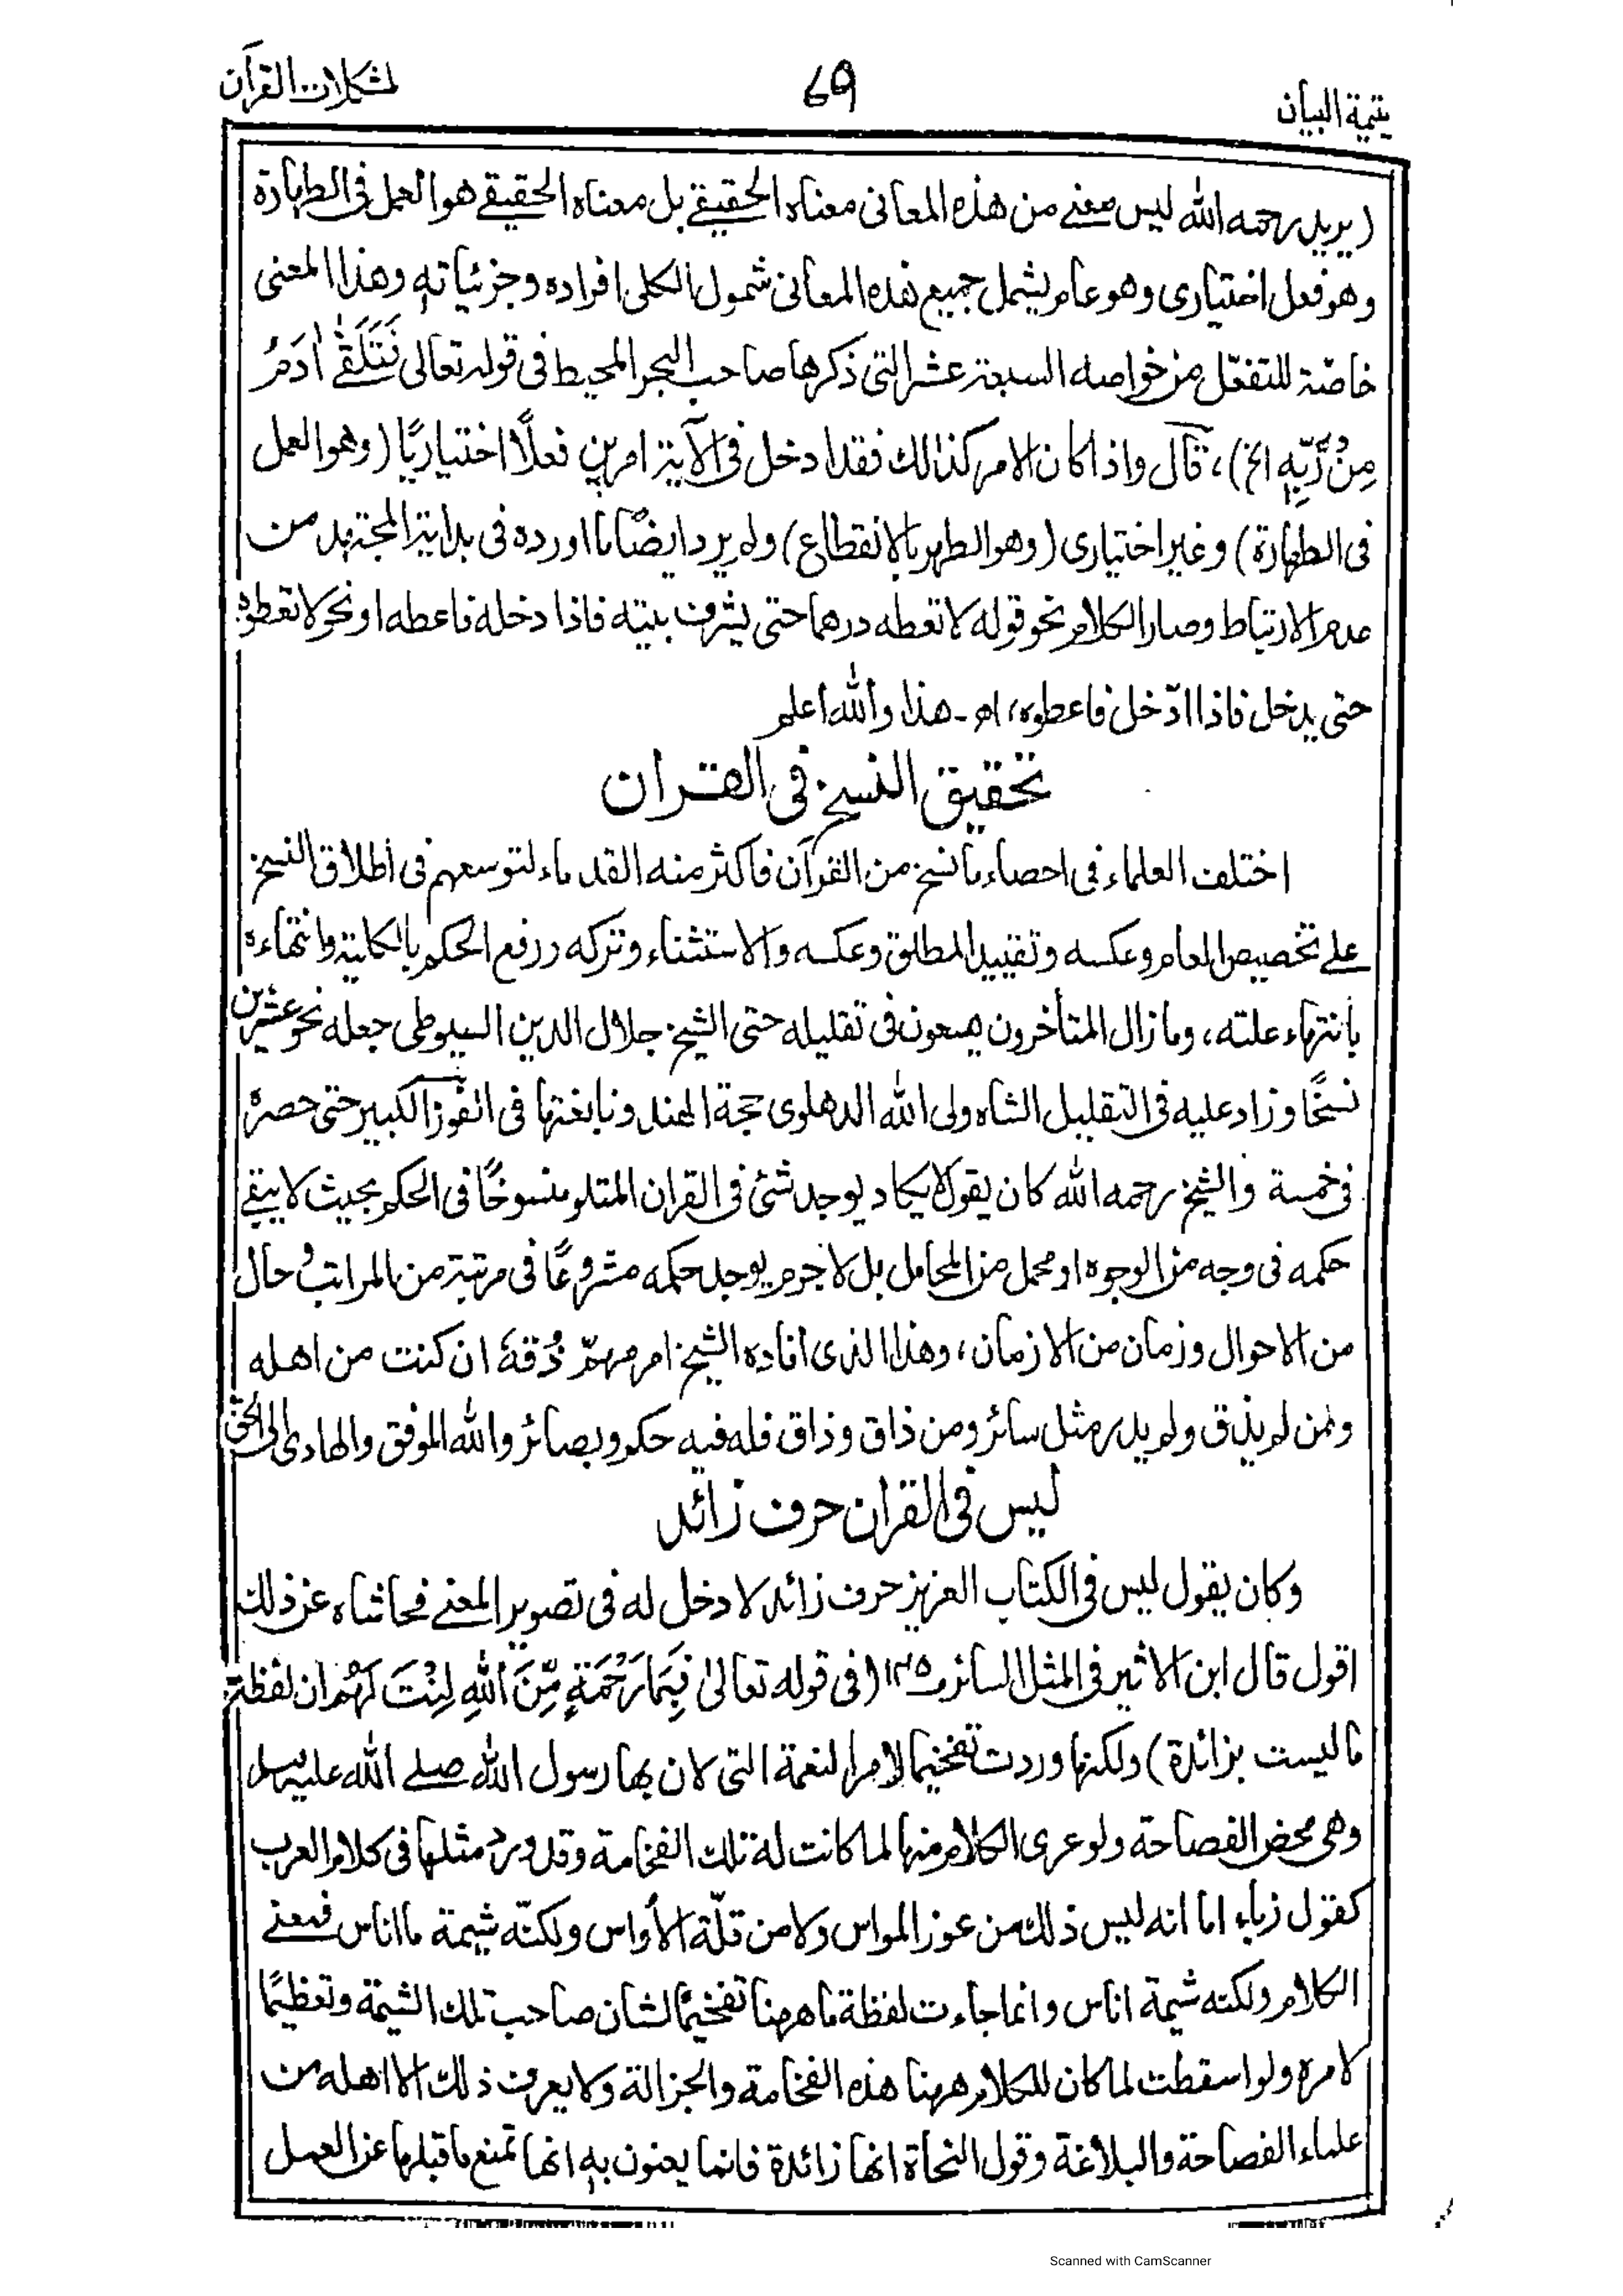 يتيمة البيان
69
لمشكلات القرآن
(يريد رحمه الله ليس معنے من هذه المعانى معناه الحقيقے بل معناه الحقيقے هو العمل فى الطهارة
وهو فعل اختيارى وهو عام يشمل جميع هذه المعانى شمول الكلى افراده وجزئياته وهذا المعنى
خاصّة للتفعّل من خواصه السبعة عشر التى ذكرها صاحب البحر المحيط فى قوله تعالى فَتَلَقّٰے اٰدَمُ
مِنْ رَّبِّهٖ الخ)، قال واذا كان الامر كذالك فقد ادخل فى الآية امرين فعلًا اختياريًا (وهو العمل
فى الطهارة) وغير اختيارى (وهو الطهر بالانقطاع) ولم يرد ايضًا ما اورده فى بداية المجتهد من
عدم الارتباط وصار الكلام نحو قوله لا تعطه درهما حتى يشرف بيته فاذا دخله فاعطه او نحو لا تعطوه
حتى يدخل فاذا ادّخل فاعطوه، اھ ـ هذا والله اعلم
تحقيق النسخ فى القران
اختلف العلماء فى احصاء ما نسخ من القرآن فاكثر منه القدماء لتوسعهم فى اطلاق النسخ
علے تخصيص العام وعكسه وتقييد المطلق وعكسه والاستثناء وتركه ورفع الحكم بالكلية وانتهاءه
بانتهاء علته، وما زال المتأخرون يسعون فى تقليله حتى الشيخ جلال الدين السيوطى جعله نحو عشرين
نسخًا وزاد عليه فى التقليل الشاه ولى الله الدهلوى حجة الهند ونابغتها فى الفوز الكبير حتى حصره
فى خمسة والشيخ رحمه الله كان يقول لا يكاد يوجد شئ فى القران المتلو منسوخًا فى الحكم بحيث لا يبقے
حكمه فى وجه من الوجوه او محمل من المحامل بل لا جرم يوجد حكمه مشروعًا فى مرتبة من المراتب وحال
من الاحوال وزمان من الازمان، وهذا الذى افاده الشيخ امر مهمّ ذُقهُ ان كنت من اهله
ومن لم يذق ولم يدر مثل سائر ومن ذاق وذاق فله فيه حكم وبصائر والله الموفق والهادى الى الحق
ليس فى القران حرف زائد
وكان يقول ليس فى الكتاب العزيز حرف زائد لا دخل له فى تصوير المعنے فحاشاه عن ذلك
اقول قال ابن الاثير فى المثل السائر (فى قوله تعالىٰ فَبِمَا رَحْمَةٍ مِّنَ اللهِ لِنْتَ لَهُمْ ان لفظة
ما ليست بزائدة) ولكنها وردت تفخيما لامر النعمة التى لان بها رسول الله صلے الله عليه وسلم
وهى محض الفصاحة ولو عرى الكلام منها لما كانت له تلك الفخامة وقد ورد مثلها فى كلام العرب
كقول زباء اما انه ليس ذلك من عوز المواس ولا من قلّة الأواس ولكنّه شيمة ما اناس فمعنے
الكلام ولكنه شيمة اناس وانما جاءت لفظة ما ههنا تفخيمًا لشان صاحب تلك الشيمة وتعظيمًا
لامره ولو اسقطت لما كان للكلام ههنا هذه الفخامة والجزالة ولا يعرف ذلك الا اهله من
علماء الفصاحة والبلاغة وقول النحاة انها زائدة فانما يعنون به انها تمنع ما قبلها عن العمل
Scanned with CamScanner